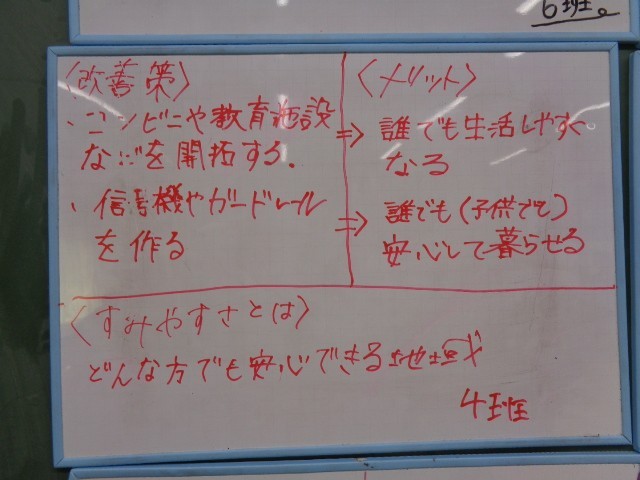 6班
〈改善策〉
・コンビニや教育施設
などを開拓する.
・信号機やガードレール
を作る
〈メリット〉
⇒ 誰でも生活しやすく
なる
⇒ 誰でも(子供でも)
安心して暮らせる
〈すみやすさとは〉
どんな方でも安心できる地域
4班